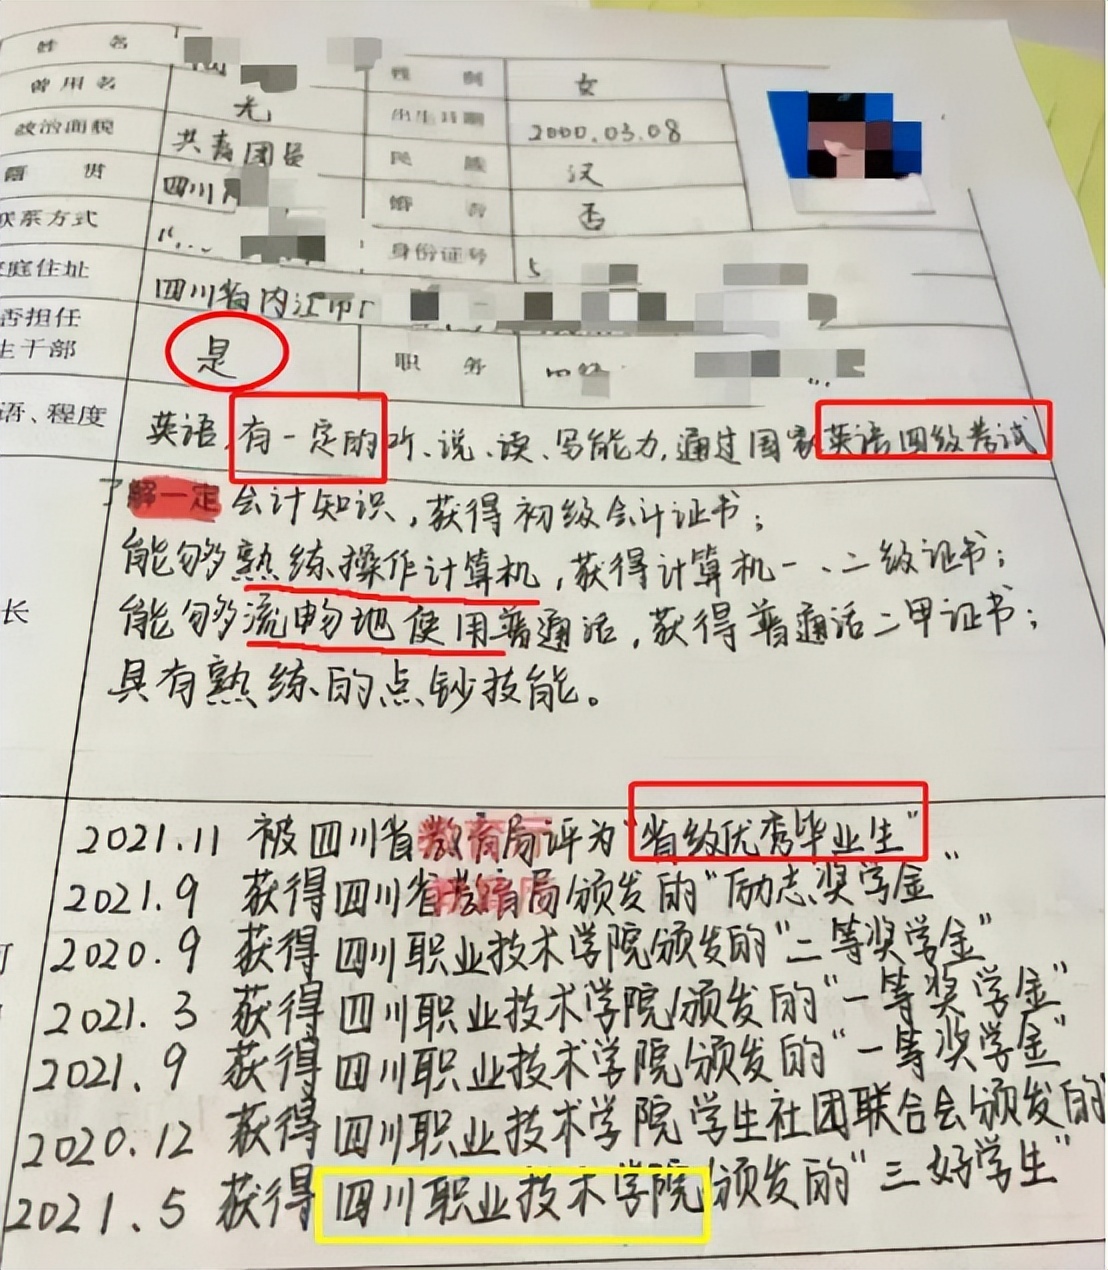 姓 名
性 别 女
曾用名 无
出生日期 2000.03.08
政治面貌 共青团员
民 族 汉
籍 贯 四川
婚 否 否
联系方式
身份证号
家庭住址 四川省内江市
否担任
生干部 是 职 务
语、程度 英语,有一定的听、说、读、写能力,通过国家英语四级考试
了解一定会计知识,获得初级会计证书;
能够熟练操作计算机,获得计算机一、二级证书;
长 能够流畅地使用普通话,获得普通话二甲证书;
具有熟练的点钞技能。
2021.11 被四川省教育局评为“省级优秀毕业生”
2021.9 获得四川省教育局颁发的“励志奖学金”
2020.9 获得四川职业技术学院颁发的“二等奖学金”
2021.3 获得四川职业技术学院颁发的“一等奖学金”
2021.9 获得四川职业技术学院颁发的“一等奖学金”
2020.12 获得四川职业技术学院学生社团联合会颁发的
2021.5 获得四川职业技术学院颁发的“三好学生”